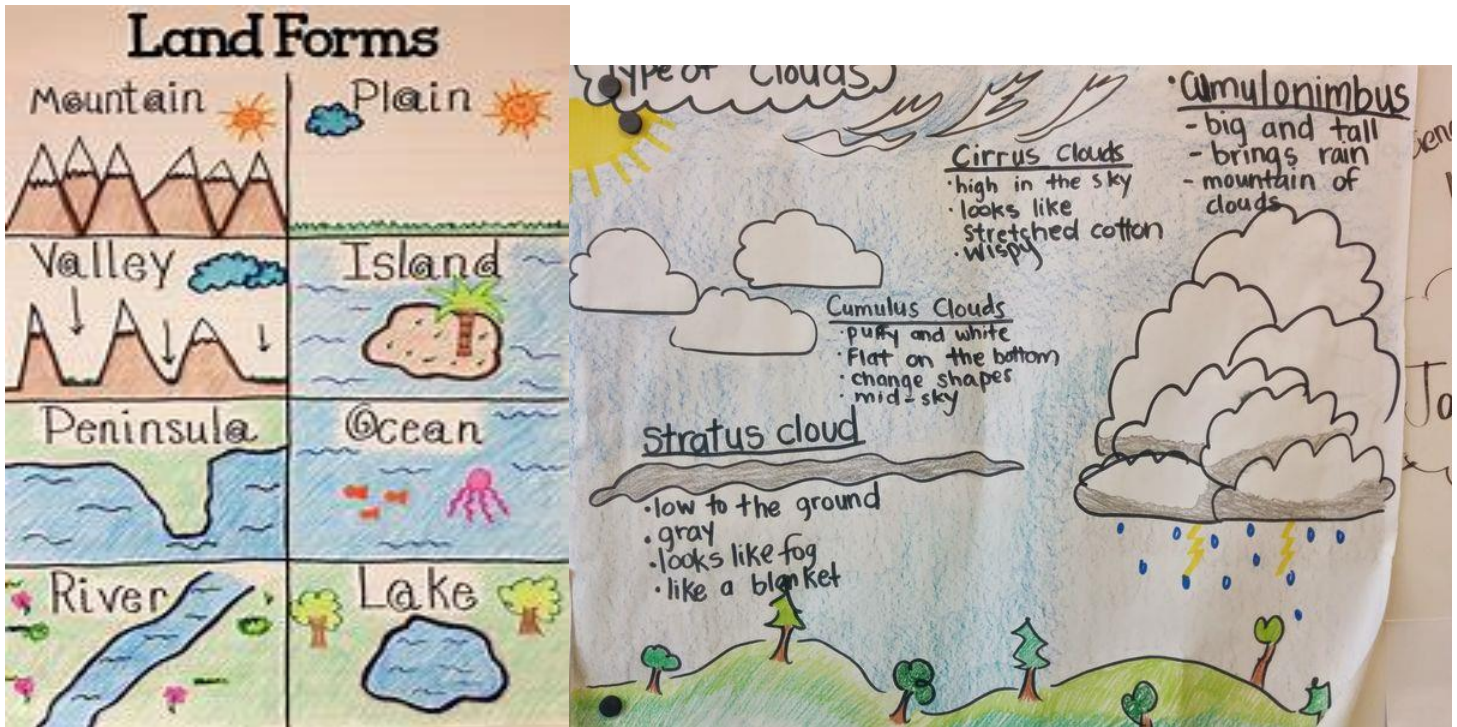 Land Forms
Mountain
Plain
Valley
Island
Peninsula
Ocean
River
Lake
Type of Clouds
Cirrus Clouds
•high in the sky
•looks like
stretched cotton
•wispy
•Cumulonimbus
-big and tall
-brings rain
-mountain of
clouds
Cumulus Clouds
•puffy and white
•Flat on the bottom
•change shapes
•mid-sky
Stratus cloud
•low to the ground
•gray
•looks like fog
•like a blanket